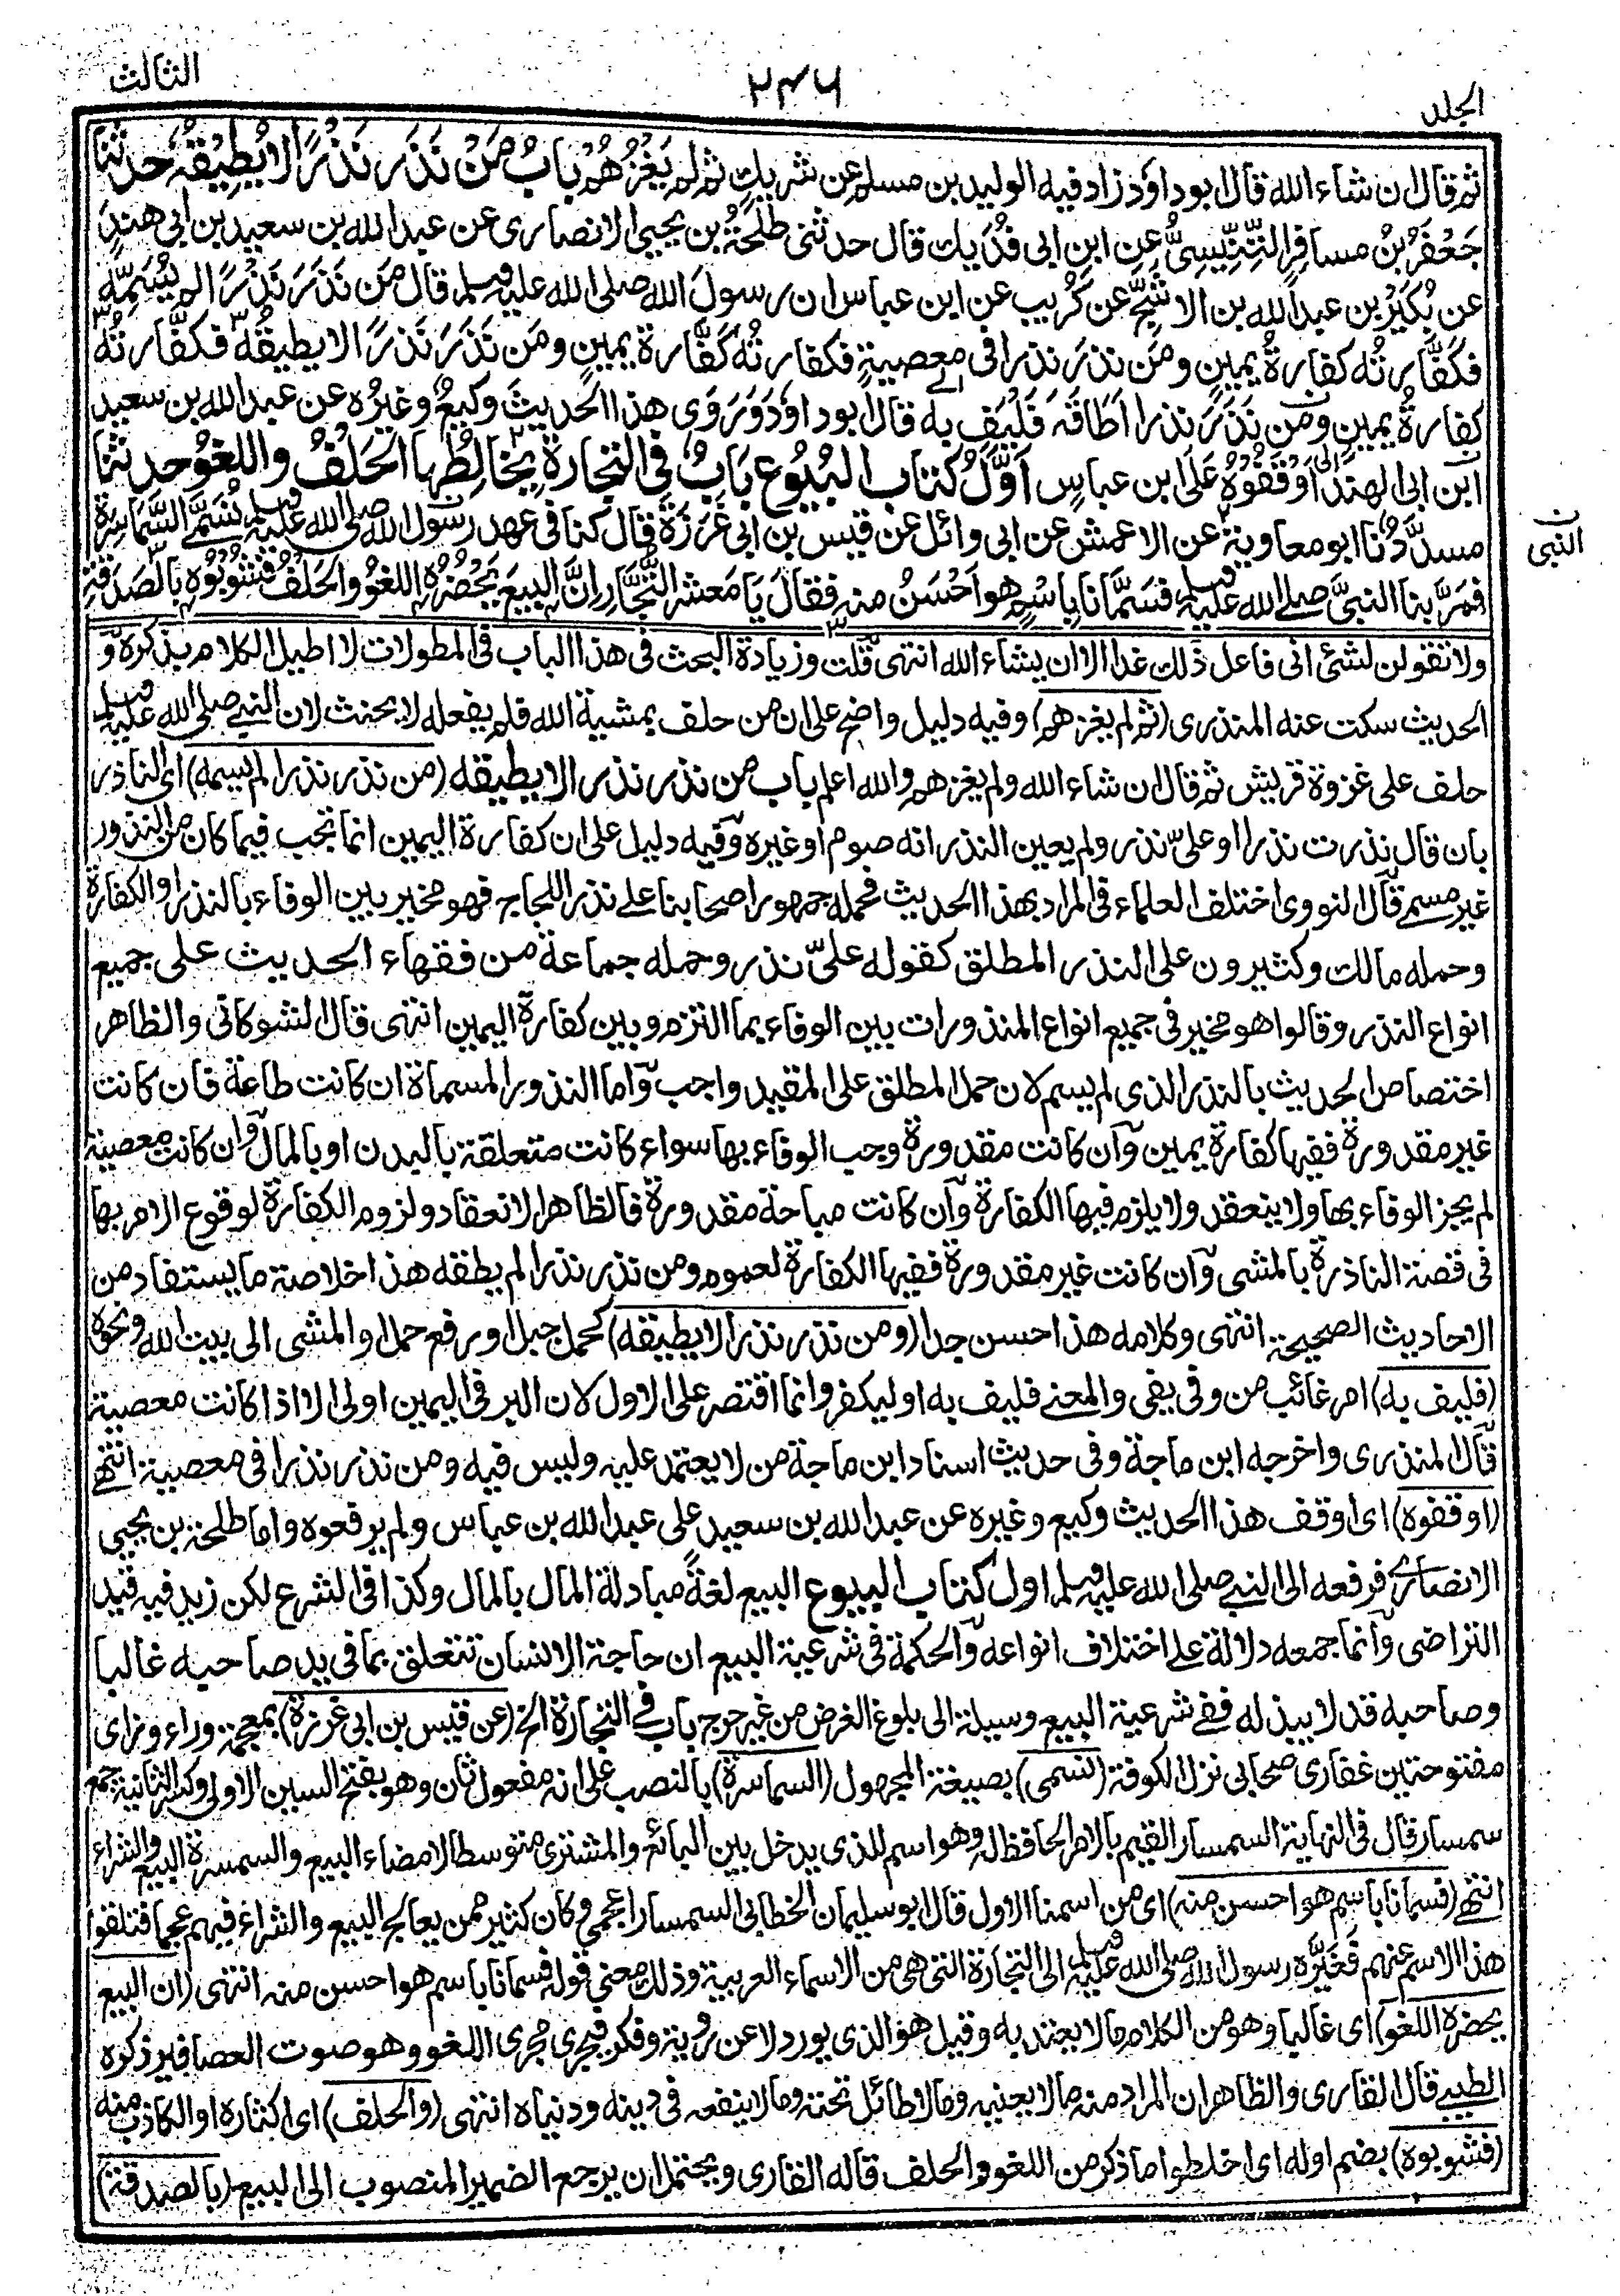 الجلد
٢٤٦
الثالث
ثم قال ان شاء الله قال ابو داؤد زاد فيه الوليد بن مسلم عن شريك ثم لم يَغْزُهُمْ بابُ مَنْ نَذَرَ نَذْرًا لا يُطِيْقُهٗ حدثنا
جَعْفَرُ بْنُ مسافِرٍ التِّنِّيْسِيُّ عِن ابن ابى فُدَيك قال حدثنى طلحَةُ بن يحيى الانصارى عن عبد الله بن سعيد بن ابى هندٍ
عن بُكَيْرِ بن عبد الله بن الاشَجِّ عن كُرَيب عن ابن عباس ان رسولَ الله صلى الله عليه وسلم قال مَن نَذَرَ نَذْرًا لم يُسَمِّهٖ
فكَفَّارتُه كفارةُ يمينٍ ومَن نذرَ نذرا فى معصيةٍ فكفارتُه كَفَّارةُ يمينٍ ومَن نَذَرَ نَذرًا لا يطيقُهٗ فكفَّارتُه
كفارةُ يمينٍ ومَن نَذَرَ نذرا اَطَاقَهٗ فَلْيَفِ به قال ابو داؤدَ وَرَوَى هذا الحديثَ وكيعٌ وغيرُه عن عبد الله بن سعيد
ابن ابى الهند اَوْقَفُوْهُ عَلَى ابن عباسٍ اَوَّلُ كتاب البُيُوْع بَابٌ فى التجارةِ يخالِطُها الحَلْفُ واللغوُ حدثنا
مسدَّدٌ نا ابو معاويةَ عن الاعمش عن ابى وائل عن قيس بن ابى غَرَزَةَ قال كنا فى عهد رسول الله صلى الله عليه وسلم نُسَمَّى السَّمَاسِرةَ
فمَرَّ بنا النبىُّ صلى الله عليه وسلم فسَمَّانا باسْمٍ هو اَحْسَنُ منه فقال يَا مَعشرَ التُّجَّارِ اِنَّ البيعَ يَحْضُرُهُ اللغوُ والحَلْفُ فَشُوْبُوْه بالصَدَقَةِ
ن
النبى
ولا تقولن لشئ انى فاعل ذلك غدا الا ان يشاء الله انتهى قلت وزيادة البحث فى هذا الباب فى المطولات لا اطيل الكلام بذكره و
الحديث سكت عنه المنذرى (ثم لم يغزهم) وفيه دليل واضح على ان من حلف بمشية الله فلم يفعله لا يحنث لان النبى صلى الله عليه وسلم
حلف على غزوة قريش ثم قال ان شاء الله ولم يغزهم والله اعلم باب من نذر نذر الا يطيقه (من نذر نذرا لم يسمه) اى الناذر
بان قال نذرت نذرا او علىّ نذر ولم يعين النذر انه صوم او غيره وفيه دليل على ان كفارة اليمين انما تجب فيما كان من النذور
غير مسمى قال النووى اختلف العلماء فى المراد بهذا الحديث فحمله جمهور اصحابنا على نذر اللجاج فهو مخير بين الوفاء بالنذر او الكفارة
وحمله مالك وكثيرون على النذر المطلق كقوله علىّ نذر وحمله جماعة من فقهاء الحديث على جميع
انواع النذر وقالوا هو مخير فى جميع انواع المنذورات بين الوفاء بما التزم وبين كفارة اليمين انتهى قال الشوكانى والظاهر
اختصاص الحديث بالنذر الذى لم يسم لان حمل المطلق على المقيد واجب واما النذور المسماة ان كانت طاعة فان كانت
غير مقدورة ففيها كفارة يمين وان كانت مقدورة وجب الوفاء بها سواء كانت متعلقة بالبدن او بالمال وان كانت معصية
لم يجز الوفاء بها ولا ينعقد ولا يلزم فيها الكفارة وان كانت مباحة مقدورة فالظاهر الانعقاد ولزوم الكفارة لوقوع الامر بها
فى قصة الناذرة بالمشى وان كانت غير مقدورة ففيها الكفارة لعموم ومن نذر نذرا لم يطقه هذا خلاصة ما يستفاد من
الاحاديث الصحيحة انتهى وكلامه هذا حسن جدا (ومن نذر نذرا لا يطيقه) كحمل جبل او رفع حمل او المشى الى بيت الله ونحوه
(فليف به) امر غائب من وفى يفى والمعنى فليف به او ليكفر وانما اقتصر على الاول لان البر فى اليمين اولى الا اذا كانت معصية
قال المنذرى واخرجه ابن ماجة وفى حديث اسناد ابن ماجة من لا يعتمد عليه وليس فيه ومن نذر نذرا فى معصية انتهى
(اوقفوه) اى اوقف هذا الحديث وكيع وغيره عن عبد الله بن سعيد على عبد الله بن عباس ولم يرفعوه واما طلحة بن يحيى
الانصارى فرفعه الى النبى صلى الله عليه وسلم اول كتاب البيوع البيع لغةً مبادلة المال بالمال وكذا فى الشرع لكن زيد فيه قيد
التراضى وانما جمعه دلالة على اختلاف انواعه والحكمة فى شرعية البيع ان حاجة الانسان تتعلق بما فى يد صاحبه غالبا
وصاحبه قد لا يبذله ففى شرعية البيع وسيلة الى بلوغ الغرض من غير حرج باب فى التجارة الخ (عن قيس بن ابى غرزة) بمعجمة وراء وزاى
مفتوحتين غفارى صحابى نزل الكوفة (نسمى) بصيغة المجهول (السماسرة) بالنصب على انه مفعول ثان وهو بفتح السين الاولى وكسر الثانية جمع
سمسار قال فى النهاية السمسار القيم بالامر الحافظ له وهو اسم للذى يدخل بين البائع والمشترى متوسطا لامضاء البيع والسمسرة البيع والشراء
انتهى (فسمانا باسم هو احسن منه) اى من اسمنا الاول قال ابو سليمان الخطابى السمسار اعجمى وكان كثير ممن يعالج البيع والشراء فيهم عجما فتلقوا
هذا الاسم عنهم فغَيَّره رسول الله صلى الله عليه وسلم الى التجارة التى هى من الاسماء العربية وذلك معنى قوله فسمانا باسم هو احسن منه انتهى (ان البيع
يحضره اللغو) اى غالبا وهو من الكلام ما لا يعتد به وقيل هو الذى يورد لا عن روية وفكر فيجرى مجرى اللغو وهو صوت العصافير ذكره
الطيبى قال القارى والظاهر ان المراد منه ما لا يعنيه وما لا طائل تحته وما لا ينفعه فى دينه ودنياه انتهى (والحلف) اى اكثاره او الكاذب منه
(فشوبوه) بضم اوله اى اخلطوا ما ذكر من اللغو والحلف قاله القارى ويحتمل ان يرجع الضمير المنصوب الى البيع (بالصدقة)